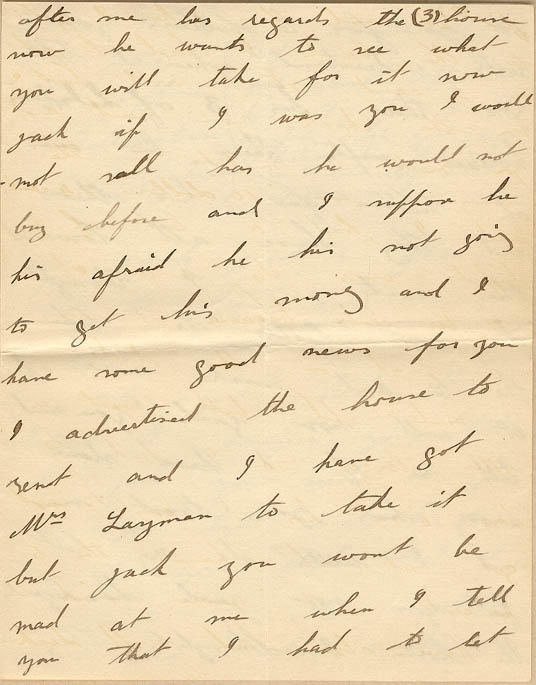 after me has regards the (3) house
now he wants to see what
you will take for it now
jack if I was you I would
not sell has he would not
buy before and I suppose he
his afraid he his not going
to get his money and I
have some good news for you
I advertised the house to
rent and I have got
Mrs Layman to take it
but jack you wont be
mad at me when I tell
you that I had to let